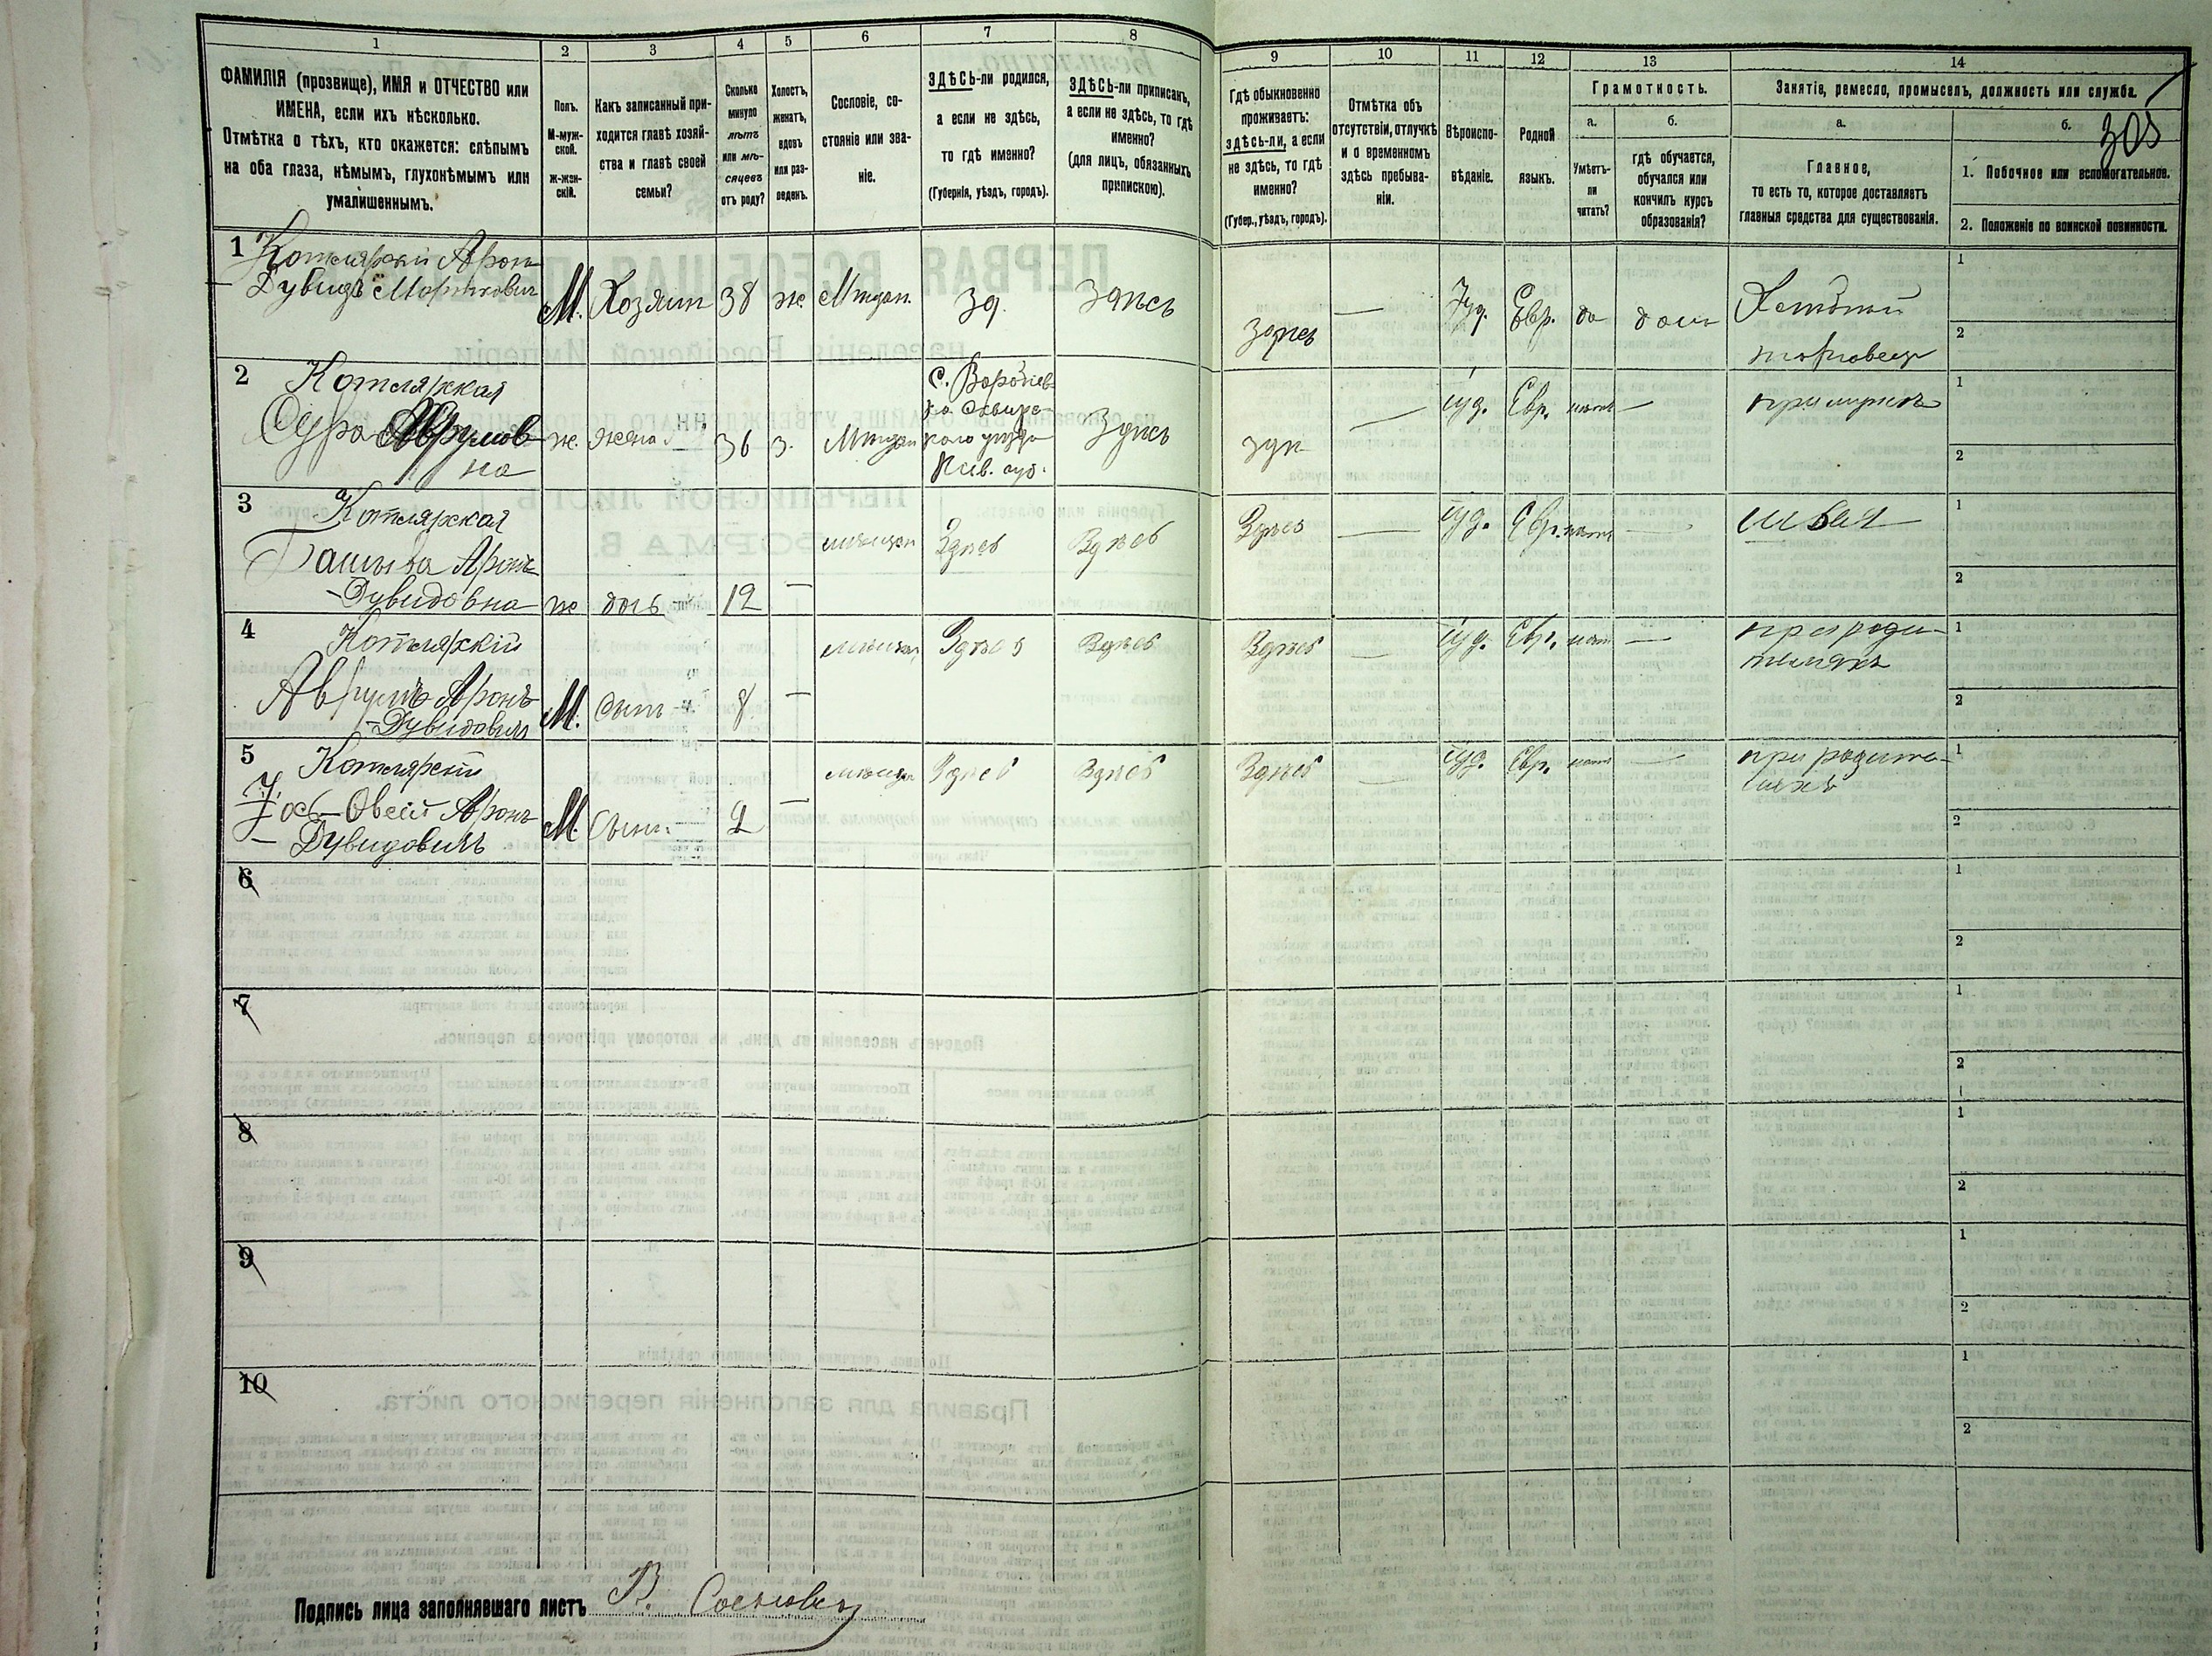 1 2 3 4 5 6 7 8 9 10 11 12 13 14
ФАМИЛІЯ (прозвище), ИМЯ и ОТЧЕСТВО или
ИМЕНА, если ихъ нѣсколько.
Отмѣтка о тѣхъ, кто окажется: слѣпымъ
на оба глаза, нѣмымъ, глухонѣмымъ или
умалишеннымъ.
Полъ.
М-муж-
ской.
ж-жен-
скій.
Какъ записанный при-
ходится главѣ хозяй-
ства и главѣ своей
семьи?
Сколько
минуло
лѣтъ
или мѣ-
сяцевъ
отъ роду?
Холостъ,
женатъ,
вдовъ
или раз-
веденъ.
Сословіе, со-
стояніе или зва-
ніе.
ЗДѢСЬ-ли родился,
а если не здѣсь,
то гдѣ именно?
(Губернія, уѣздъ, городъ).
ЗДѢСЬ-ли приписанъ,
а если не здѣсь, то гдѣ
именно?
(для лицъ, обязанныхъ
припискою).
Гдѣ обыкновенно
проживаетъ:
здѣсь-ли, а если
не здѣсь, то гдѣ
именно?
(Губер., уѣздъ, городъ).
Отмѣтка объ
отсутствіи, отлучкѣ
и о временномъ
здѣсь пребыва-
ніи.
Вѣроиспо-
вѣданіе.
Родной
языкъ.
Грамотность.
а.
Умѣетъ-
ли
читать?
б.
гдѣ обучается,
обучался или
кончилъ курсъ
образованія?
Занятіе, ремесло, промыселъ, должность или служба.
а.
Главное,
то есть то, которое доставляетъ
главныя средства для существованія.
б.
305
1. Побочное или вспомогательное.
2. Положеніе по воинской повинности.
1 Котлярскій Аронъ
Дувидъ
М. Хозяин 38 ж. Мѣщан. зд. Здѣсь здѣсь — Іуд. Евр. да дома
торговец
1
2
2 Котлярская
Сура Аврумов
на
ж. жена 36 з. Мѣщан
с. Воробіев
ка Сквирс
каго уезда
Кіев. губ.
Здѣсь здѣ — іуд. Евр. нет — при муже
1
2
3 Котлярская
Башева Аронъ
-Дувидовна ж дочь 12 — мещан Здѣсь Здѣсь Здѣсь — іуд. Евр. нет — швея
1
2
4 Котлярскій
Аврумъ Аронъ
-Дувидовичъ М. сынъ 8 — мещан Здѣсь Здѣсь Здѣсь — іуд. Евр. нет —
при роди-
телях
1
2
5 Котлярскій
Іос-Овсей Аронъ
- Дувидовичъ М. Сынъ 2 — мещан Здѣсь Здѣсь Здѣсь — іуд. Евр. нет —
при родите-
лях
1
2
6
1
2
7
1
2
8
1
2
9
1
2
10
1
2
Подпись лица заполнявшаго листъ В.